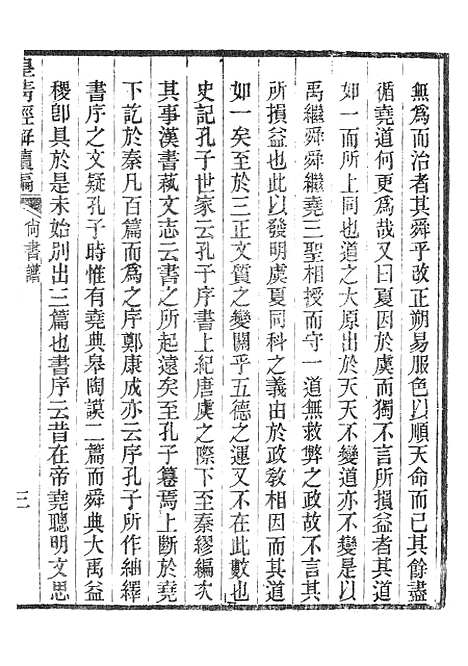 無爲而治者其舜乎改正朔易服色以順天命而已其餘盡
循堯道何更爲哉又曰夏因於虞而獨不言所損益者其道
如一而所上同也道之大原出於天天不變道亦不變是以
禹繼舜舜繼堯三聖相授而守一道無救弊之政故不言其
所損益也此以發明虞夏同科之義由於政相因而其道
如一矣至於三正文質之變關乎五德之運又不在此數也
史記孔子世家云孔子序書上紀唐虞之際下至秦繆編次
其事漢書蓺文志云書之所起遠矣至孔子篹焉上斷於堯
下訖於秦凡百篇而爲之序鄭康成亦云序孔子所作紬繹
書序之文疑孔子時惟有堯典皋陶謨二篇而舜典大禹益
稷卽具於是未始別出三篇也書序云昔在帝堯聰明文思
皇淸經解續編
尙書譜
三